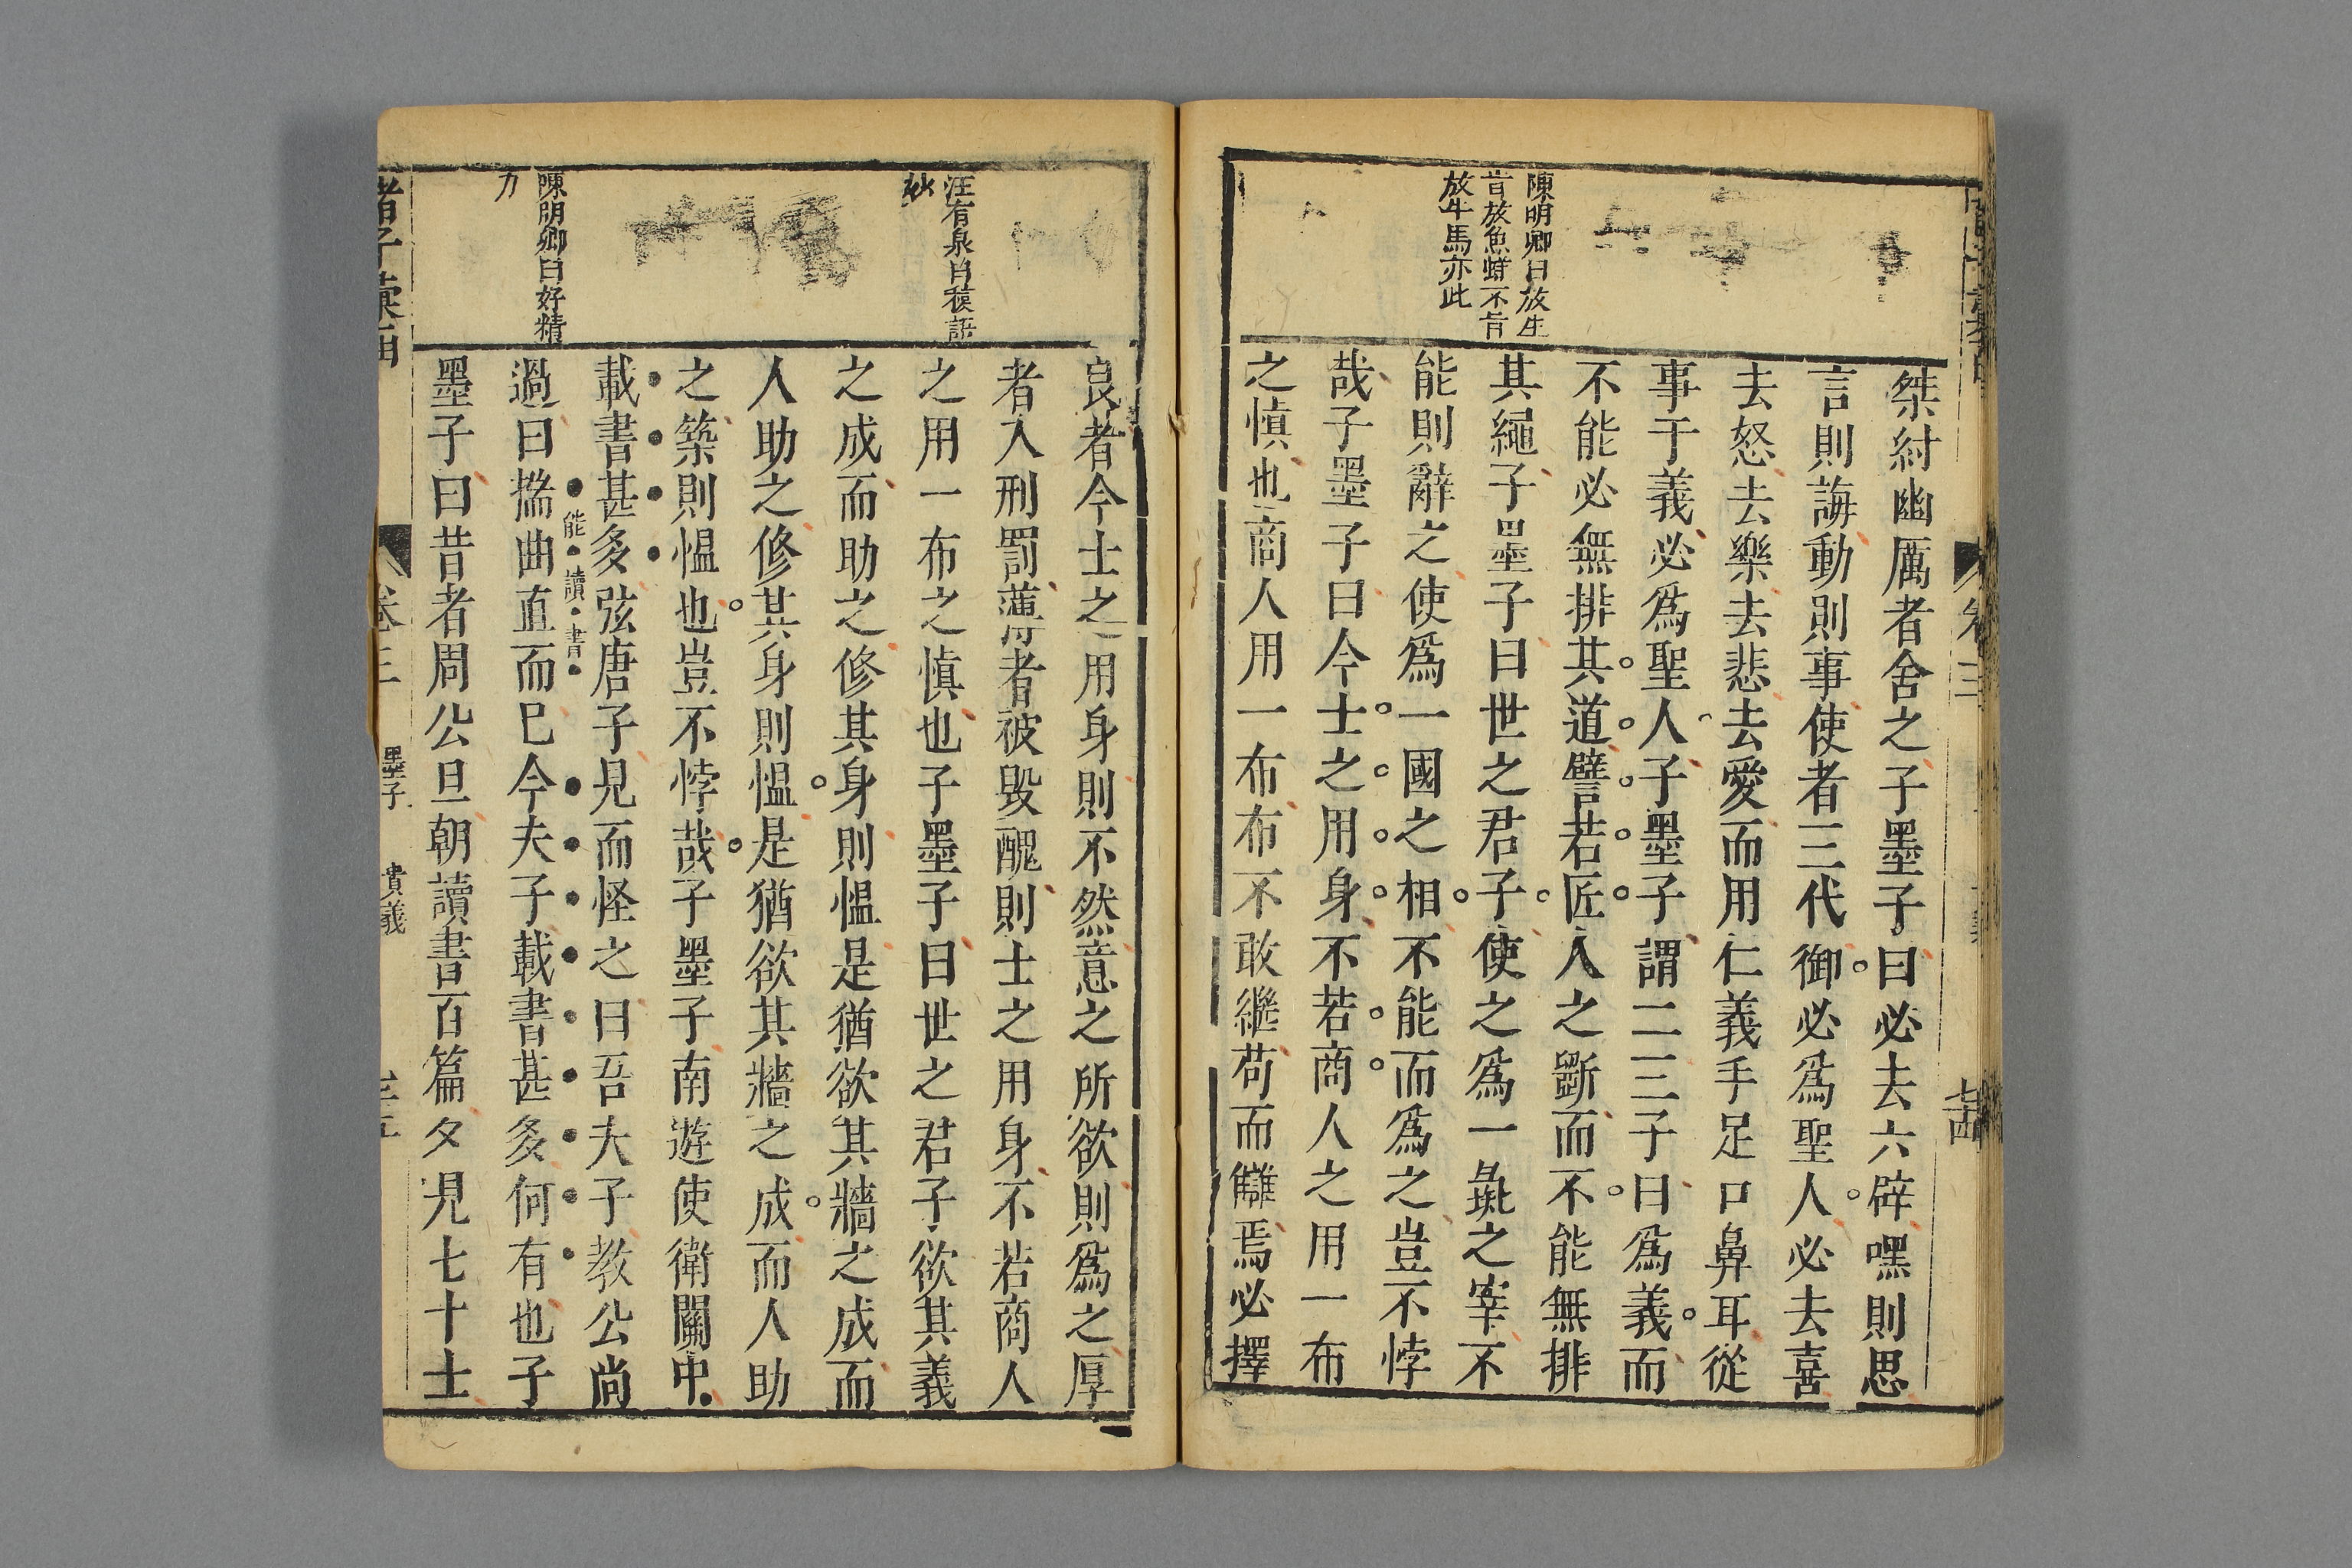 陳明卿曰放生
旨放魚蜉不旨
放牛馬亦此
桀紂幽厲者舍之子墨子曰必去六辟嘿則思
言則誨動則事使者三代御必爲聖人必去喜
去怒去樂去悲去愛而用仁義手足口鼻耳從
事于義必爲聖人子墨子謂二三子曰爲義而
不能必無排其道譬若匠人之斲而不能無排
其繩子墨子曰世之君子使之爲一彘之宰不
能則辭之使爲一國之相不能而爲之豈不悖
哉子墨子曰今士之用身不若商人之用一布
之慎也商人用一布布不敢繼苟而讎焉必擇
卷三
汪有泉曰穠語
玅
陳明卿曰好精
力
良者今士之用身則不然意之所欲則爲之厚
者入刑罰薄者被毀醜則士之用身不若商人
之用一布之慎也子墨子曰世之君子欲其義
之成而助之修其身則慍是猶欲其牆之成而
人助之修其身則慍是猶欲其牆之成而人助
之築則慍也豈不悖哉子墨子南遊使衛關中
載書甚多弦唐子見而怪之曰吾夫子教公尚
能讀書
過曰揣曲直而巳今夫子載書甚多何有也子
墨子曰昔者周公旦朝讀書百篇夕見七十士
諸子彙函
卷三
墨子
貴義